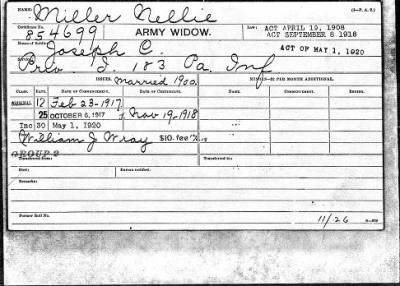 NAME: Miller Nellie (3-P. A. P.)
Certificate No. 854699 ARMY WIDOW. LAW: ACT APRIL 19, 1908
ACT SEPTEMBER 8 1916
Name of Soldier: Joseph C. ACT OF MAY 1, 1920
Service: Priv. I. 183 Pa. Inf
ISSUES. married 1900. MINORS—$2 PER MONTH ADDITIONAL.
CLASS. RATE. DATE OF COMMENCEMENT. DATE OF CERTIFICATE. NAME. COMMENCEMENT. ENDING.
ORIGINAL 12 Feb 23-1917.
25 OCTOBER 6, 1917 Nov 19-1918
Inc 30 May 1, 1920
William J Wray $10. fee
GROUP 2
Transferred from: Transferred to:
Died: Bureau notified:
Remarks:
Former Roll No. 11/26